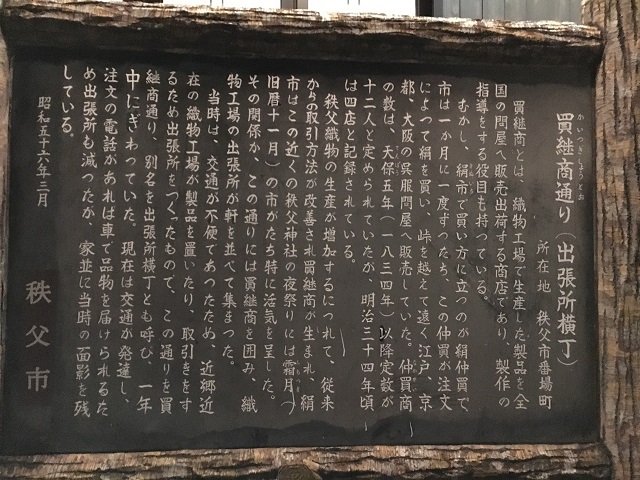 かいつぎしょうとお
買継商通り（出張所横丁）
所在地　秩父市番場町
買継商とは、織物工場で生産した製品を全
国の問屋へ販売出荷する商店であり、製作の
指導をする役目も持っている。
むかし、絹市で買い方に立つのが絹仲買で
市は一か月に一度ずつたち、この仲買が注文
によって絹を買い、峠を越えて遠く江戸、京
都、大阪の呉服問屋へ販売していた。仲買商
の数は、天保五年（一八三四年）以降定数が
十二人と定められていたが、明治三十四年頃
は四店と記録されている。
秩父織物の生産が増加するにつれて、従来
からの取引方法が改善され買継商が生まれ、絹
市はこの近くの秩父神社の夜祭りには霜月（
旧暦十一月）の市がたち特に活気を呈した。
その関係か、この通りには買継商を囲み、織
物工場の出張所が軒を並べて集まった。
当時は、交通が不便であったため、近郷近
在の織物工場が製品を置いたり、取引きをす
るため出張所をつくったもので、この通りを買
継商通り、別名を出張所横丁とも呼び、一年
中にぎわっていた。現在は交通が発達し、
注文の電話があれば車で品物を届けられるた
め出張所も減ったが、家並に当時の面影を残
している。
昭和五十六年三月
秩父市